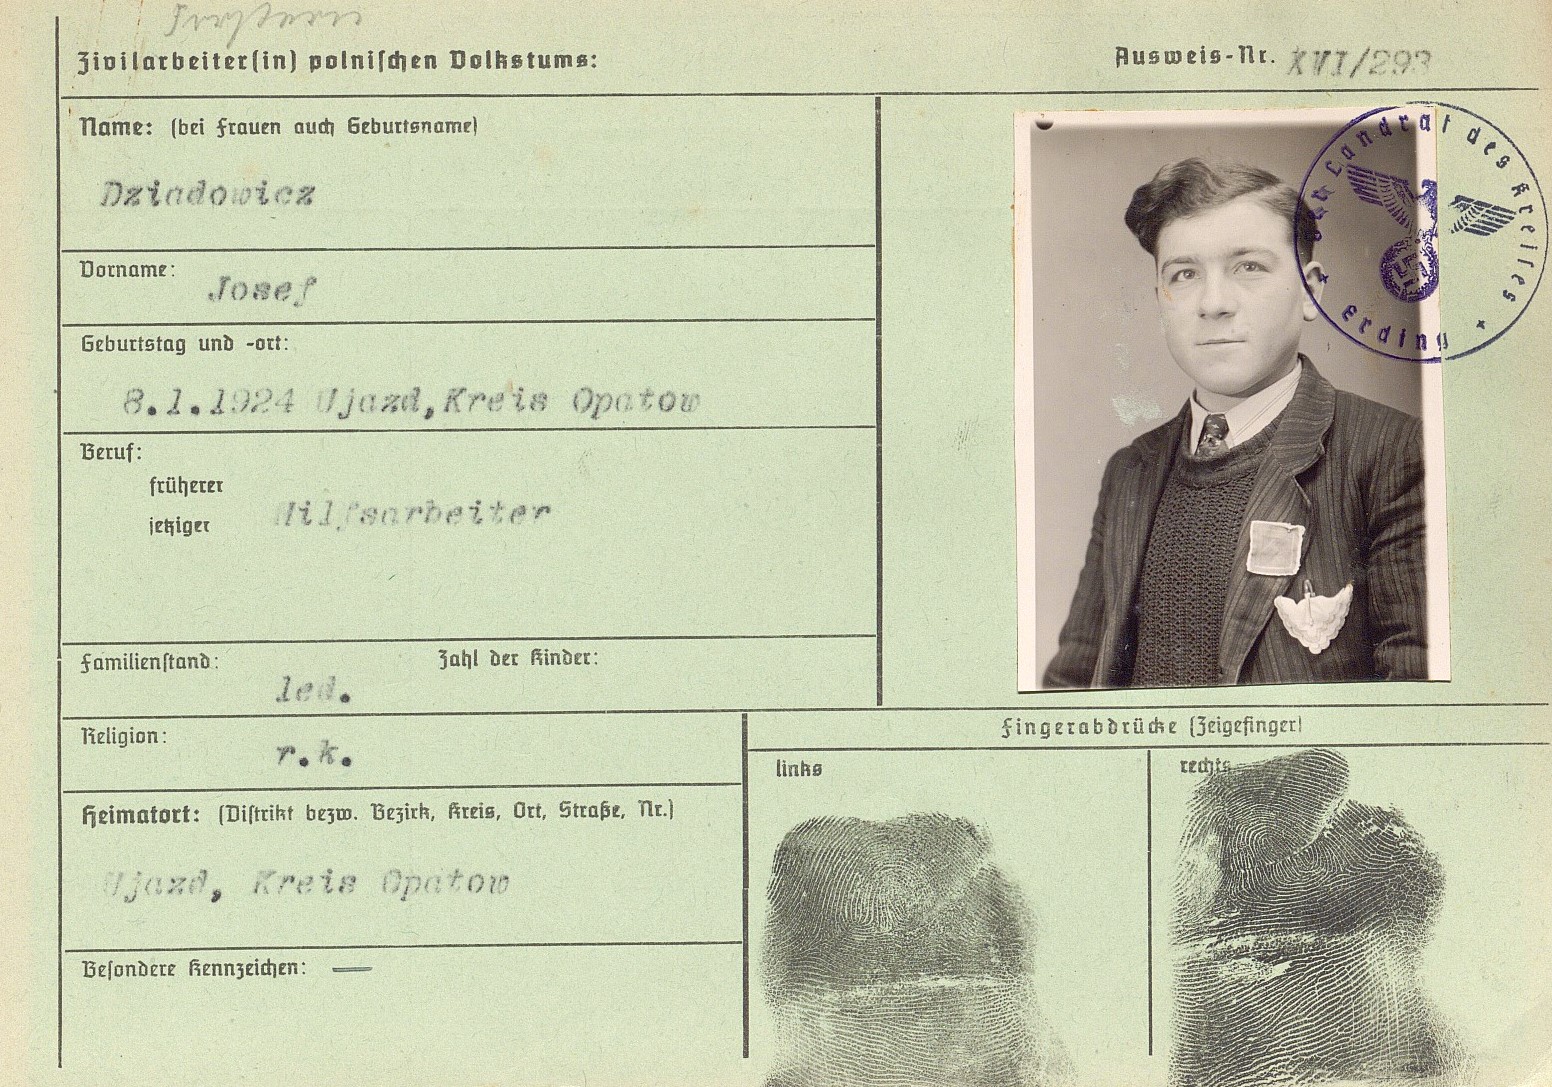 Zivilarbeiter(in) polnischen Volkstums:
Ausweis-Nr. XVI/293
Name: (bei Frauen auch Geburtsname)
Dziadowicz
Vorname: Josef
Geburtstag und -ort:
8.1.1924 Ujazd,Kreis Opatow
Beruf:
früherer
jetziger
Hilfsarbeiter
Familienstand: Zahl der Kinder:
led.
Religion:
r.k.
Heimatort: (Distrikt bezw. Bezirk, Kreis, Ort, Straße, Nr.)
Ujazd, Kreis Opatow
Besondere Kennzeichen: —
Der Landrat des Kreises
Erding
Fingerabdrücke (Zeigefinger)
links
rechts